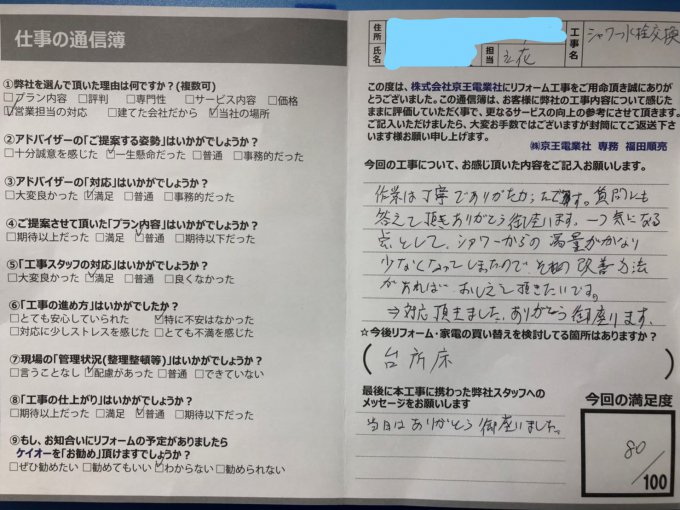 仕事の通信簿
①弊社を選んで頂いた理由は何ですか?(複数可)
□プラン内容 □評判 □専門性 □サービス内容 □価格
☑営業担当の対応 □建てた会社だから ☑当社の場所
②アドバイザーの「ご提案する姿勢」はいかがでしょうか?
□十分誠意を感じた ☑一生懸命だった □普通 □事務的だった
③アドバイザーの「対応」はいかがでしょうか?
□大変良かった ☑満足 □普通 □事務的だった
④ご提案させて頂いた「プラン内容」はいかがでしょうか?
□期待以上だった □満足 ☑普通 □期待以下だった
⑤「工事スタッフの対応」はいかがでしょうか?
□大変良かった ☑満足 □普通 □良くなかった
⑥「工事の進め方」はいかがでしたか?
□とても安心していられた ☑特に不安はなかった
□対応に少しストレスを感じた □とても不満を感じた
⑦現場の「管理状況(整理整頓等)」はいかがでしょうか?
□言うことなし ☑配慮があった □普通 □できていない
⑧「工事の仕上がり」はいかがでしょうか?
□期待以上だった □満足 ☑普通 □期待以下だった
⑨もし、お知合いにリフォームの予定がありましたら
ケイオーを「お勧め」頂けますでしょうか?
□ぜひ勧めたい □勧めてもいい ☑わからない □勧められない
住所
氏名
担当 立花
工事名 シャワー水栓交換
この度は、株式会社京王電業社にリフォーム工事をご用命頂き誠にありが
とうございました。この通信簿は、お客様に弊社の工事内容について感じた
ままに評価していただく事で、更なるサービスの向上の参考にさせて頂きます。
ご記入いただけましたら、大変お手数ではございますが封筒にてご返送下さ
います様お願い申し上げます。
㈱京王電業社 専務 福田順亮
今回の工事について、お感じ頂いた内容をご記入お願いします。
作業は丁寧でありがたかったです。質問にも
答えて頂きありがとう御座います。一つ気になる
点として、シャワーからの湯量がかなり
少なくなってしまったので、その改善方法
があれば おしえて頂きたいです。
⇒対応頂きました、ありがとう御座います。
☆今後リフォーム・家電の買い替えを検討してる箇所はありますか?
(台所床)
最後に本工事に携わった弊社スタッフへの
メッセージをお願いします
当日はありがとう御座いました。
今回の満足度
80
/100